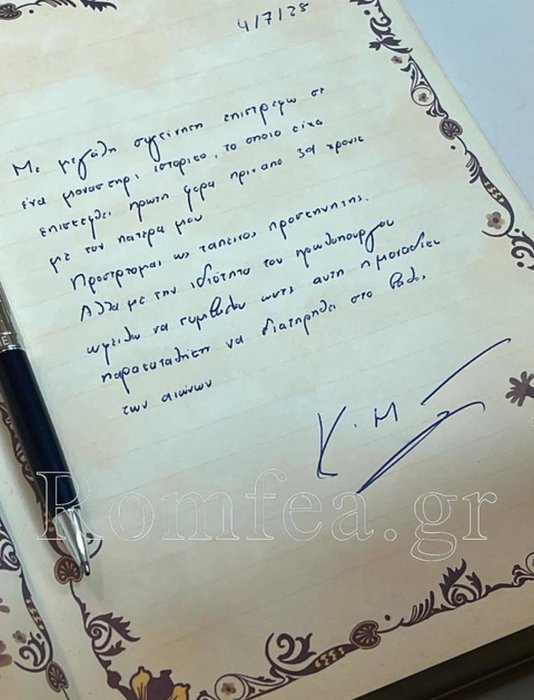 4/7/25
Με μεγάλη συγκίνηση επιστρέφω σε
ένα μοναστήρι ιστορικό, το οποίο είχα
επισκεφθεί πρώτη φορά πριν από 34 χρόνια
με τον πατέρα μου
Προσέρχομαι ως ταπεινός προσκυνητής.
Αλλά με την ιδιότητα του πρωθυπουργού
ωφείλω να συμβάλω ώστε αυτή η μοναδική
παρακαταθήκη να διατηρηθεί στο βάθος
των αιώνων
Κ. Μ
Romfea.gr